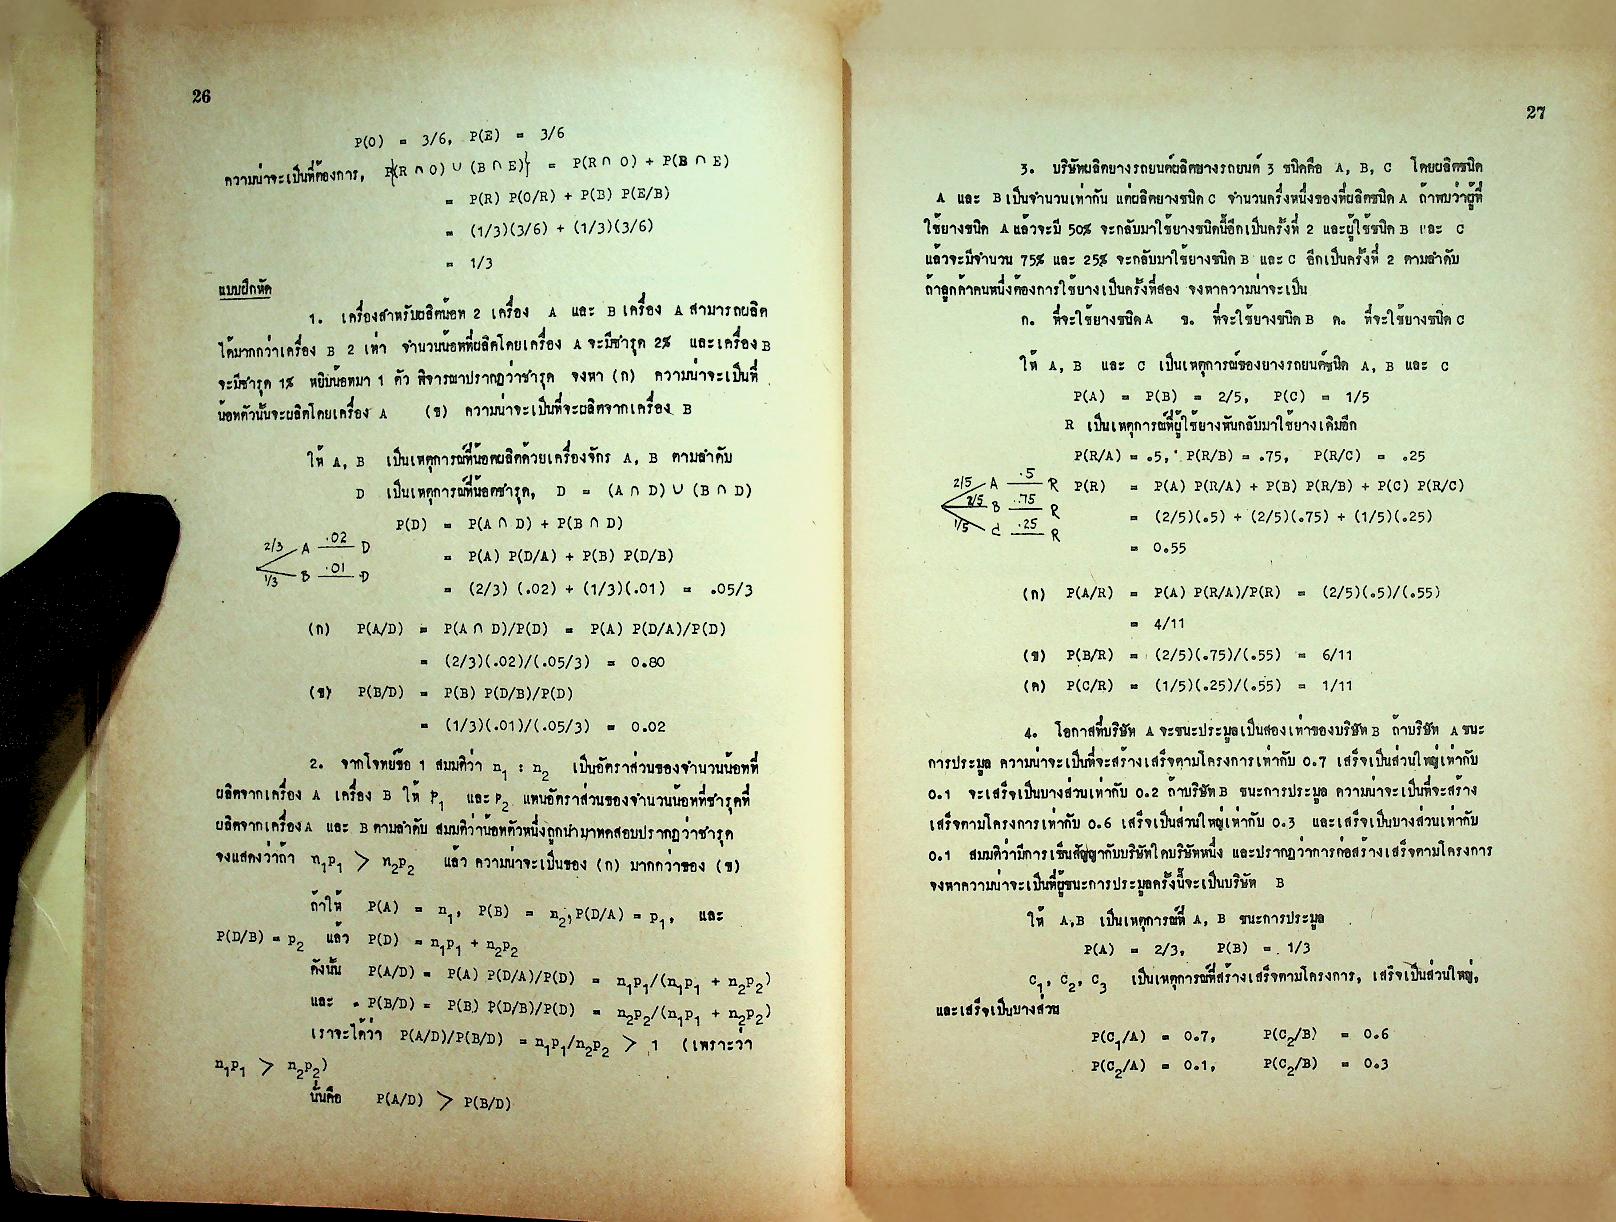 26
P(O) = 3/6, P(E) = 3/6
ความน่าจะเป็นที่ต้องการ, P{(R ∩ O) ∪ (B ∩ E)} = P(R ∩ O) + P(B ∩ E)
= P(R) P(O/R) + P(B) P(E/B)
= (1/3)(3/6) + (1/3)(3/6)
= 1/3
แบบฝึกหัด
1. เครื่องสำหรับผลิตน้อท 2 เครื่อง A และ B เครื่อง A สามารถผลิต
ได้มากกว่าเครื่อง B 2 เท่า จำนวนน้อทที่ผลิตโดยเครื่อง A จะมีชำรุด 2% และเครื่อง B
จะมีชำรุด 1% หยิบน้อทมา 1 ตัว พิจารณาปรากฏว่าชำรุด จงหา (ก) ความน่าจะเป็นที่
น้อทตัวนั้นจะผลิตโดยเครื่อง A (ข) ความน่าจะเป็นที่จะผลิตจากเครื่อง B
ให้ A, B เป็นเหตุการณ์ที่น้อตผลิตด้วยเครื่องจักร A, B ตามลำดับ
D เป็นเหตุการณ์ที่น้อตชำรุด, D = (A ∩ D) ∪ (B ∩ D)
P(D) = P(A ∩ D) + P(B ∩ D)
2/3 A .02 D
= P(A) P(D/A) + P(B) P(D/B)
1/3 B .01 D
= (2/3) (.02) + (1/3)(.01) = .05/3
(ก) P(A/D) = P(A ∩ D)/P(D) = P(A) P(D/A)/P(D)
= (2/3)(.02)/(.05/3) = 0.80
(ข) P(B/D) = P(B) P(D/B)/P(D)
= (1/3)(.01)/(.05/3) = 0.02
2. จากโจทย์ข้อ 1 สมมติว่า n₁ : n₂ เป็นอัตราส่วนของจำนวนน้อทที่
ผลิตจากเครื่อง A เครื่อง B ให้ P₁ และ P₂ แทนอัตราส่วนของจำนวนน้อทที่ชำรุดที่
ผลิตจากเครื่อง A และ B ตามลำดับ สมมติว่าน้อทตัวหนึ่งถูกนำมาทดสอบปรากฏว่าชำรุด
จงแสดงว่าถ้า n₁p₁ > n₂p₂ แล้ว ความน่าจะเป็นของ (ก) มากกว่าของ (ข)
ถ้าให้ P(A) = n₁, P(B) = n₂, P(D/A) = p₁, และ
P(D/B) = p₂ แล้ว P(D) = n₁p₁ + n₂p₂
ดังนั้น P(A/D) = P(A) P(D/A)/P(D) = n₁p₁/(n₁p₁ + n₂p₂)
และ P(B/D) = P(B) P(D/B)/P(D) = n₂p₂/(n₁p₁ + n₂p₂)
เราจะได้ว่า P(A/D)/P(B/D) = n₁p₁/n₂p₂ > 1 (เพราะว่า
n₁p₁ > n₂p₂)
นั้นคือ P(A/D) > P(B/D)
27
3. บริษัทผลิตยางรถยนต์ผลิตยางรถยนต์ 3 ชนิดคือ A, B, C โดยผลิตชนิด
A และ B เป็นจำนวนเท่ากัน แต่ผลิตยางชนิด C จำนวนครึ่งหนึ่งของที่ผลิตชนิด A ถ้าพบว่าผู้ที่
ใช้ยางชนิด A แล้วจะมี 50% จะกลับมาใช้ยางชนิดนี้อีกเป็นครั้งที่ 2 และผู้ใช้ชนิด B และ C
แล้วจะมีจำนวน 75% และ 25% จะกลับมาใช้ยางชนิด B และ C อีกเป็นครั้งที่ 2 ตามลำดับ
ถ้าลูกค้าคนหนึ่งต้องการใช้ยางเป็นครั้งที่สอง จงหาความน่าจะเป็น
ก. ที่จะใช้ยางชนิด A ข. ที่จะใช้ยางชนิด B ค. ที่จะใช้ยางชนิด C
ให้ A, B และ C เป็นเหตุการณ์ของยางรถยนต์ชนิด A, B และ C
P(A) = P(B) = 2/5, P(C) = 1/5
R เป็นเหตุการณ์ที่ผู้ใช้ยางหันกลับมาใช้ยางเดิมอีก
P(R/A) = .5, P(R/B) = .75, P(R/C) = .25
2/5 A .5 R P(R) = P(A) P(R/A) + P(B) P(R/B) + P(C) P(R/C)
2/5 B .75 R = (2/5)(.5) + (2/5)(.75) + (1/5)(.25)
1/5 C .25 R
= 0.55
(ก) P(A/R) = P(A) P(R/A)/P(R) = (2/5)(.5)/(.55)
= 4/11
(ข) P(B/R) = (2/5)(.75)/(.55) = 6/11
(ค) P(C/R) = (1/5)(.25)/(.55) = 1/11
4. โอกาสที่บริษัท A จะชนะประมูลเป็นสองเท่าของบริษัท B ถ้าบริษัท A ชนะ
การประมูล ความน่าจะเป็นที่จะสร้างเสร็จตามโครงการเท่ากับ 0.7 เสร็จเป็นส่วนใหญ่เท่ากับ
0.1 จะเสร็จเป็นบางส่วนเท่ากับ 0.2 ถ้าบริษัท B ชนะการประมูล ความน่าจะเป็นที่จะสร้าง
เสร็จตามโครงการเท่ากับ 0.6 เสร็จเป็นส่วนใหญ่เท่ากับ 0.3 และเสร็จเป็นบางส่วนเท่ากับ
0.1 สมมติว่ามีการเซ็นสัญญากับบริษัทใดบริษัทหนึ่ง และปรากฏว่าการก่อสร้างเสร็จตามโครงการ
จงหาความน่าจะเป็นที่ผู้ชนะการประมูลครั้งนี้จะเป็นบริษัท B
ให้ A,B เป็นเหตุการณ์ที่ A, B ชนะการประมูล
P(A) = 2/3, P(B) = 1/3
C₁, C₂, C₃ เป็นเหตุการณ์ที่สร้างเสร็จตามโครงการ, เสร็จเป็นส่วนใหญ่,
และเสร็จเป็นบางส่วน
P(C₁/A) = 0.7, P(C₂/B) = 0.6
P(C₂/A) = 0.1, P(C₂/B) = 0.3